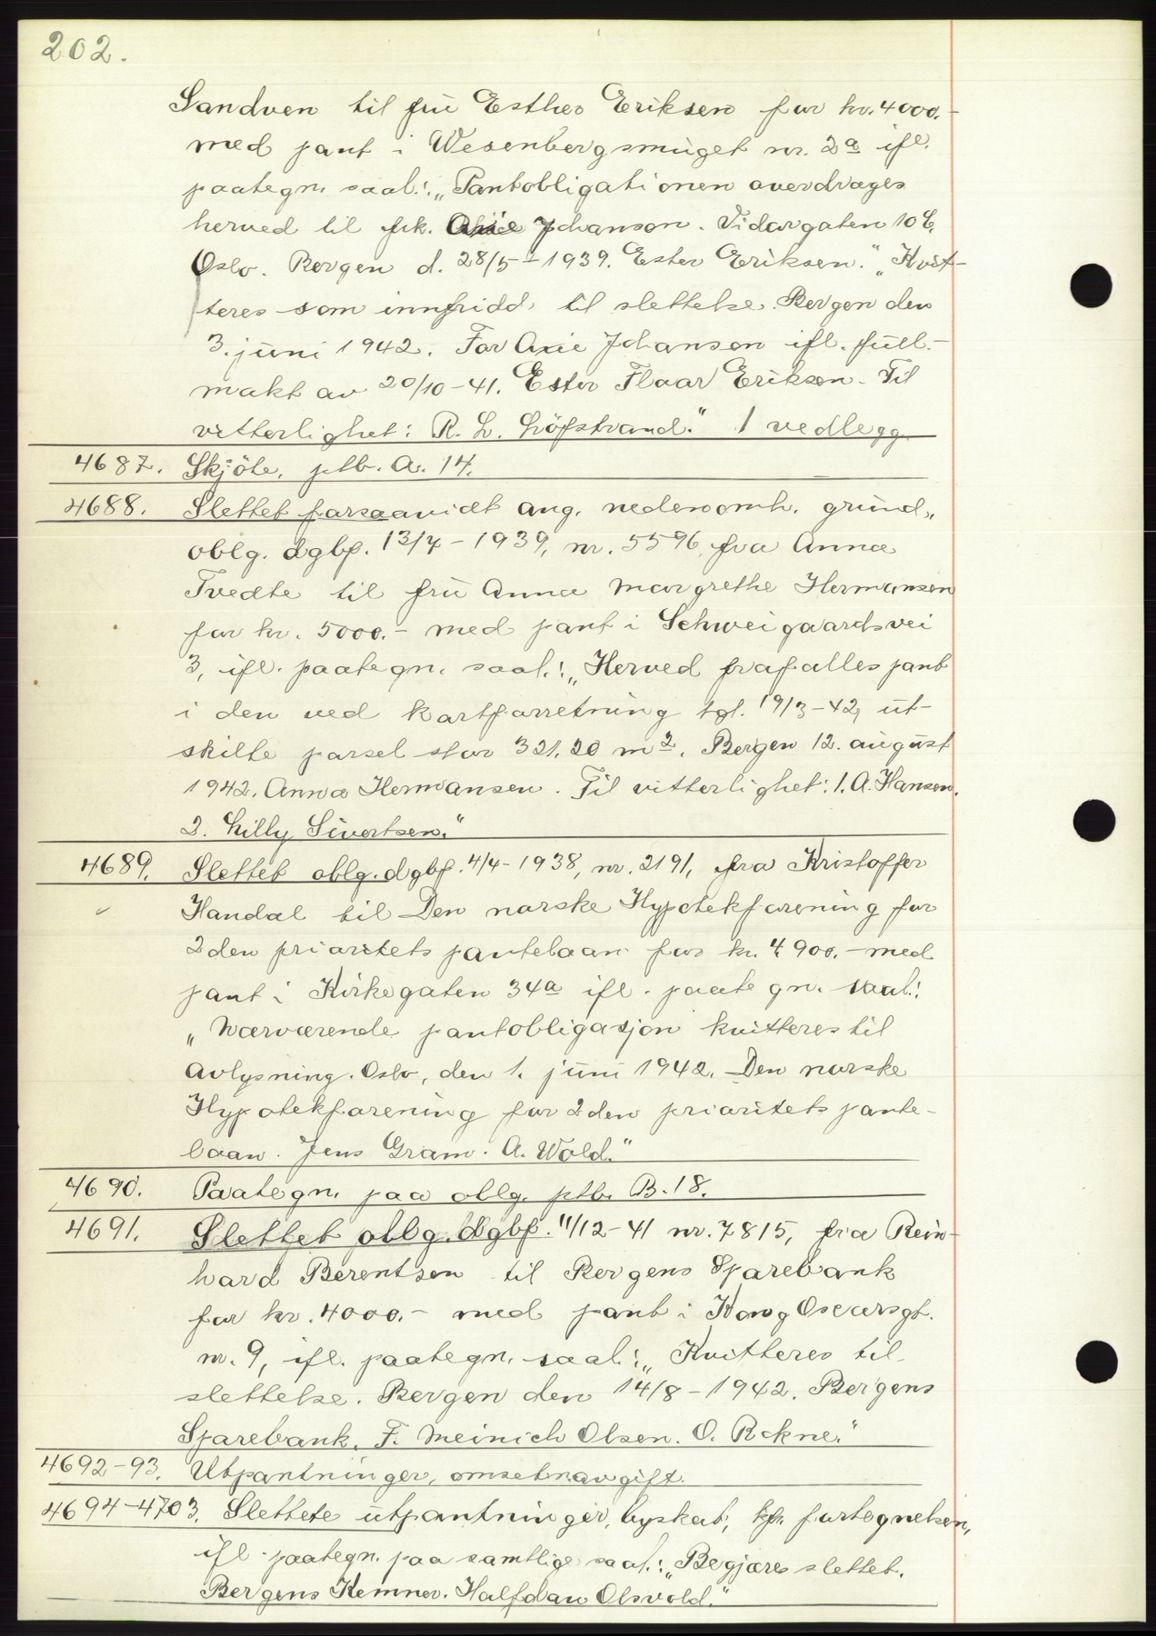 202.
Sandven til fru Esther Eriksen for kr. 4000.-
med pant i Wesenbergsmuget nr. 2a ifl.
paategn. saal.: „Pantobligationen overdrages
herved til frk. Johanson. Vidargaten 10 C,
Oslo. Bergen d. 28/5-1939. Ester Eriksen." „Kvit-
teres som innfridd til slettelse. Bergen den
3. juni 1942. For Axie Johanson ifl. full-
makt av 20/10-41. Ester Flaar Eriksen. Til
vitterlighet: R. L. Löfstrand." 1 vedlegg.
4687. Skjöte, ptb. A. 14.
4688. Slettet forsaavidt ang. nedenomh. grund,
oblg. dgbf. 13/7-1939, nr. 5596, fra Anna
Tvedte til fru Anna Margrethe Hermansen
for kr. 5000.- med pant i Schweigaardsvei
3, ifl. paategn. saal.: „Herved frafalles pant
i den ved kartforretning tgl. 19/3-42, ut-
skilte parsel stor 321.20 m2. Bergen 12. august
1942. Anna Hermansen. Til vitterlighet: 1. A. Hansen.
2. Lilly Sivertsen."
4689. Slettet oblg. dgbf. 4/4-1938, nr. 2191, fra Kristoffer
Handal til Den norske Hypotekforening for
2den prioritets pantelaan for kr. 4900.- med
pant i Kirkegaten 34a ifl. paategn. saal.:
„Nærværende pantobligasjon kvitteres til
avlysning. Oslo, den 1. juni 1942. Den norske
Hypotekforening for 2den prioritets pante-
laan. Jens Gram. A. Wold."
4690. Paategn. paa oblg. ptb. B. 18.
4691. Slettet oblg. dgbf. 11/12-41 nr. 7815, fra Rein-
hard Berentsen til Bergens Sparebank
for kr. 4000.- med pant i Kong Oscarsgt.
nr. 9, ifl. paategn. saal.: „Kvitteres til
slettelse. Bergen den 14/8-1942. Bergens
Sparebank. F. Meinich Olsen. O. Rokne."
4692-93. Utpantninger, omsetn.avgift.
4694-4703. Slettete utpantninger, byskat, kfr. fortegnelsen,
ifl. paategn. paa samtlige saal.: „Begjæres slettet.
Bergens Kemner. Halfdan Olsvold."